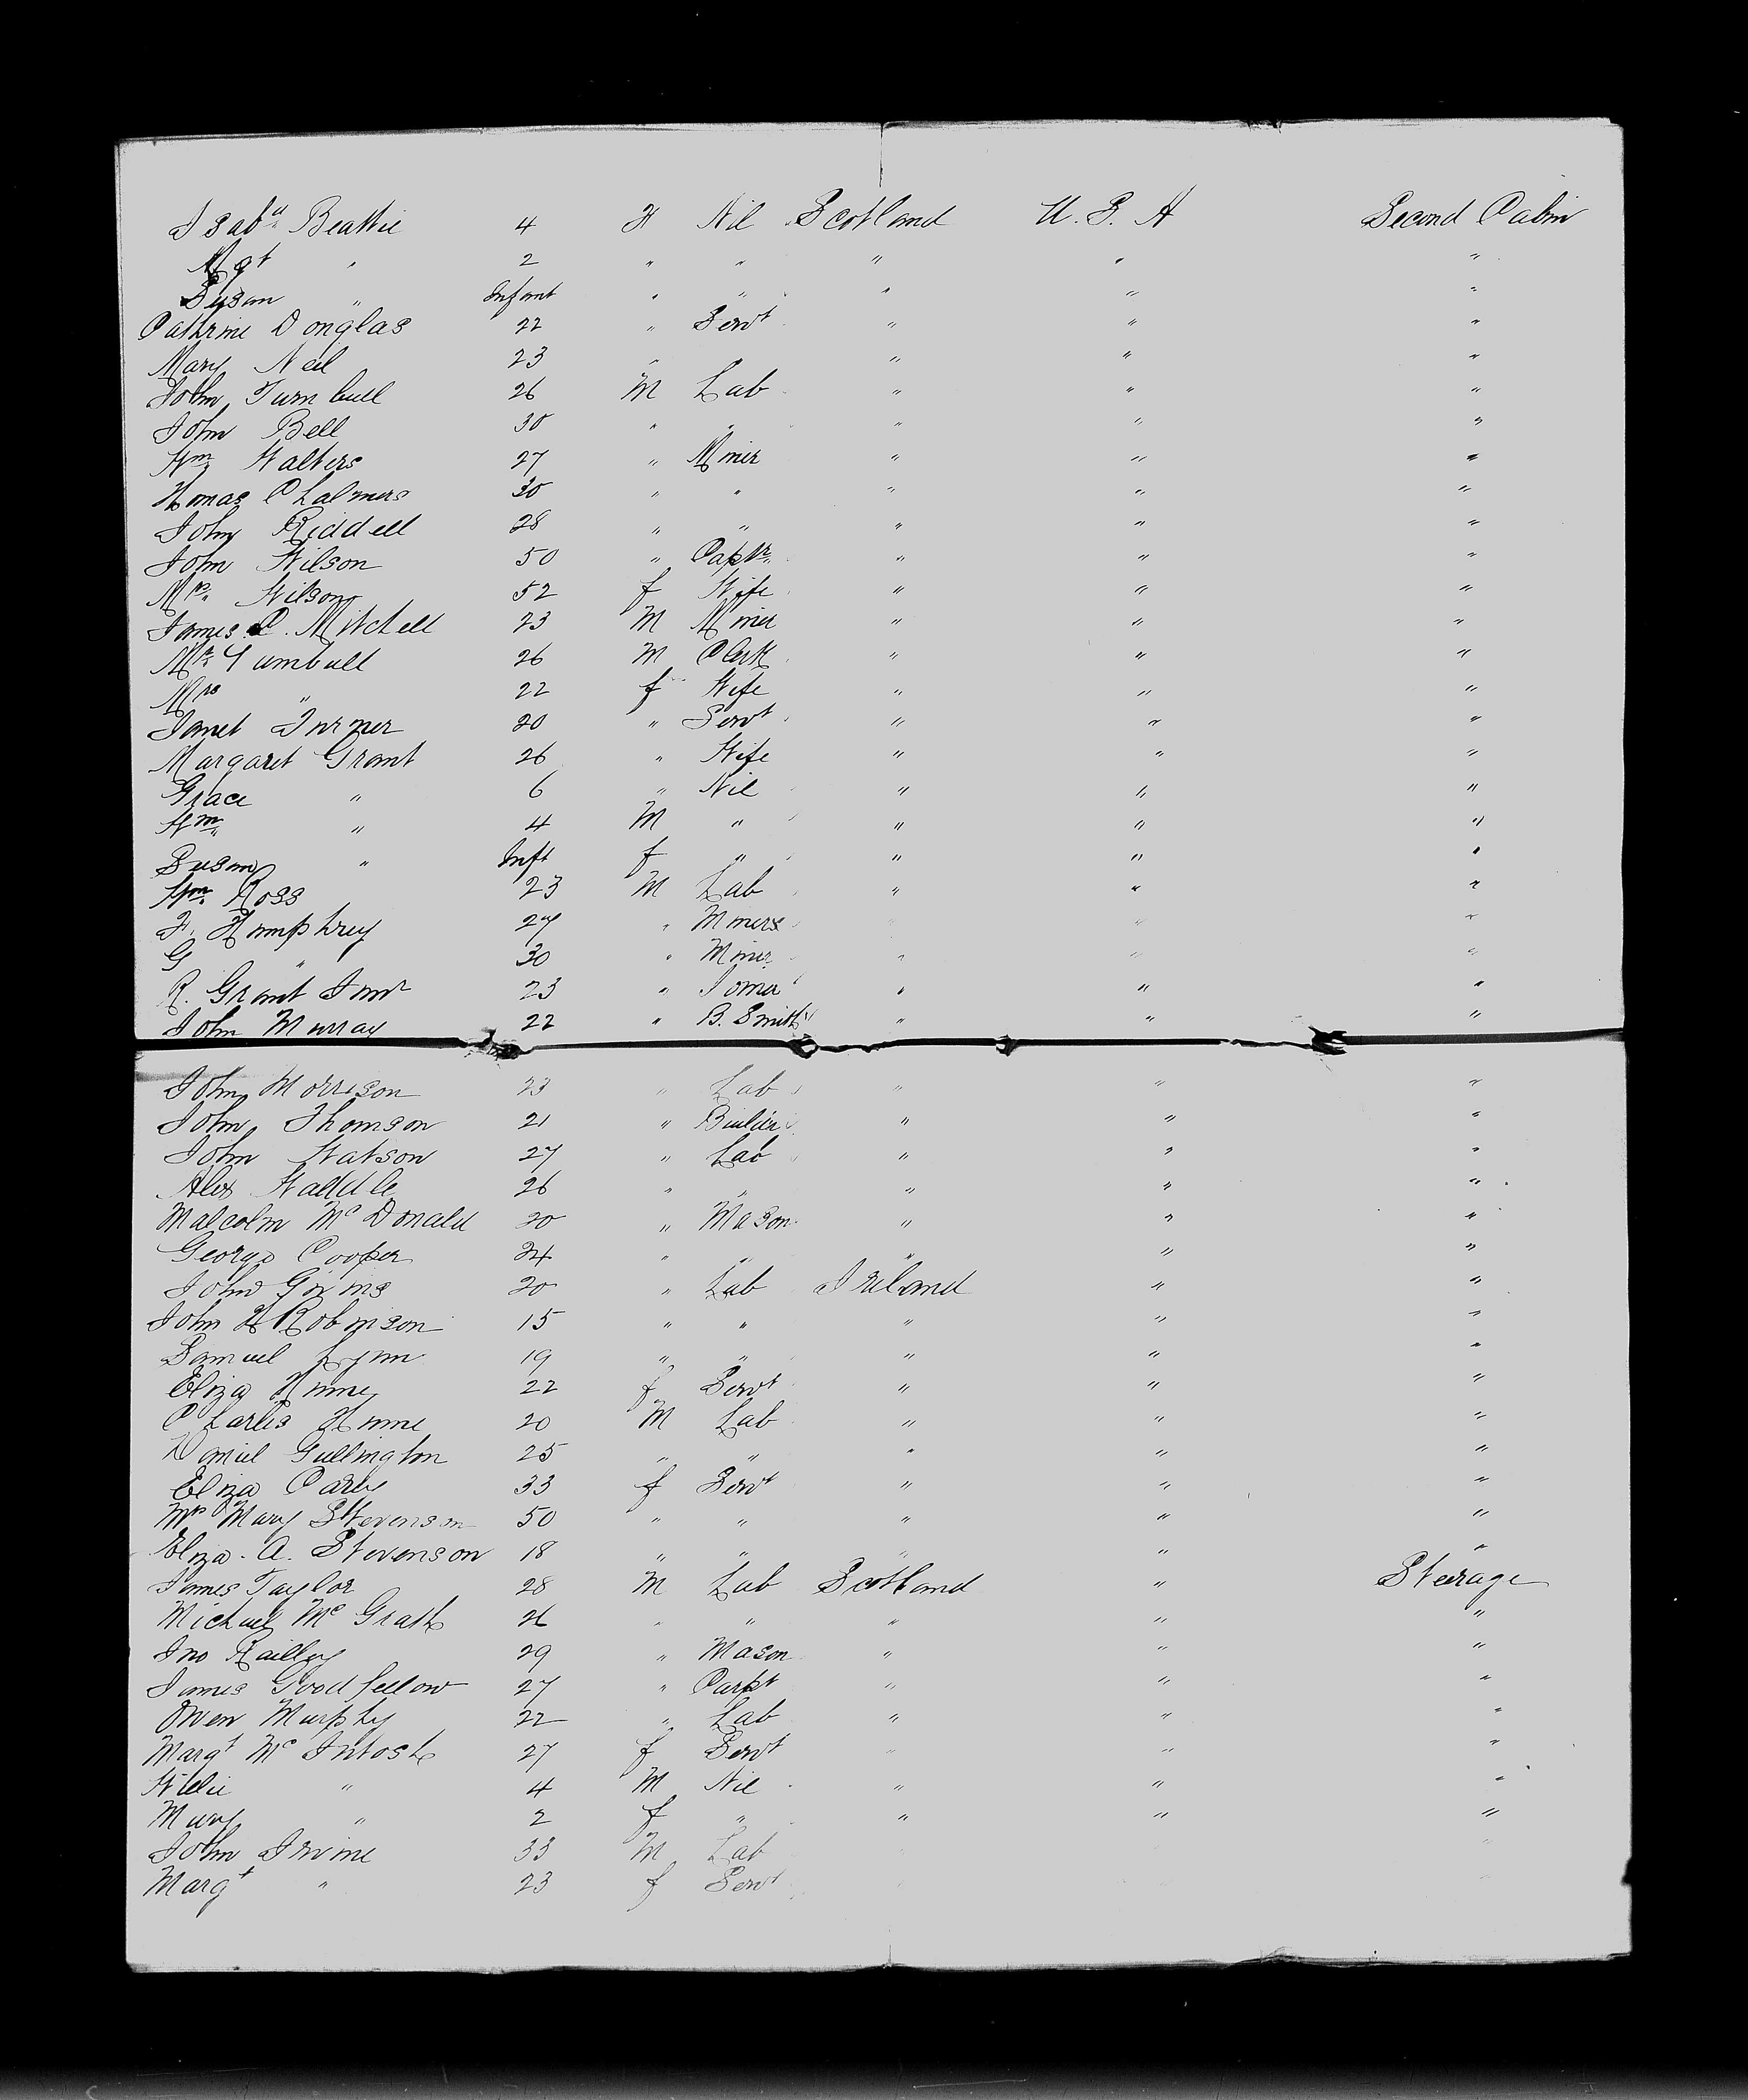 Isabª Beattie 4 F Nil Scotland U. S. A Second Cabin
Mgt " 2 " " " " "
Susan " Infant " " " " "
Cathrine Douglas 22 " Servt " " "
Mary Neil 23 " " " " "
John Turnbull 26 M Lab " " "
John Bell 30 " " " " "
Wm Walters 27 " Miner " " "
Thomas Chalmers 30 " " " " "
John Riddell 28 " " " " "
John Wilson 50 " " " "
Mrs Wilson 52 f Wife " " "
James C. Mitchell 23 M Miner " " "
Mr Turnbull 26 M Clerk " " "
Mrs " 22 f Wife " " "
Janet Turner 20 " Servt " " "
Margaret Grant 26 " Wife " " "
Grace " 6 " Nil " " "
Wm " 4 M " " " "
Susan " Inft f " " " "
Wm Ross 23 M Lab " " "
F. Humphrey 27 " Miners " " "
G " 30 " Miner " " "
R. Grant Junr 23 " " " "
John Murray 22 " B. Smith " " "
John Morrison 23 " Lab " " "
John Thomson 21 " " " "
John Watson 27 " Lab " " "
Alex Waddle 26 " " " " "
Malcolm Mc Donald 20 " Mason " " "
George Cooper 24 " " " " "
John 20 " Lab Ireland " "
John H Robinson 15 " " " " "
Samuel Lynn 19 " " " " "
Eliza Hume 22 f Servt " " "
Charles Hume 20 M Lab " " "
Daniel Gullington 25 " " " " "
Eliza 33 f Servt " " "
Mrs Mary Stevenson 50 " " " " "
Eliza. A. Stevenson 18 " " " " "
James Taylor 28 M Lab Scotland " Steerage
Michael Mc Grath 26 " " " " "
Jno Railley 29 " Mason " " "
James Goodfellow 27 " Carpt " " "
Owen Murphy 22 " Lab " " "
Margt Mc Intosh 27 f Servt " " "
Willie " 4 M Nil " " "
Mary " 2 f " " " "
John Irvine 33 M Lab
Margt " 23 f Servt